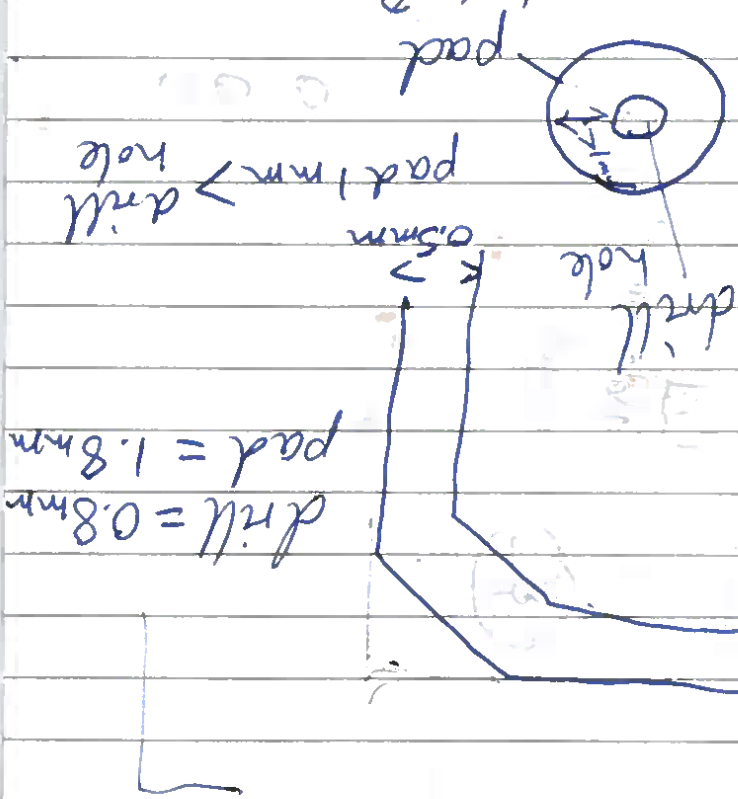 drill = 0.8mm
pad = 1.8mm
drill
hole
0.5mm
pad 1mm > drill
hole
pad